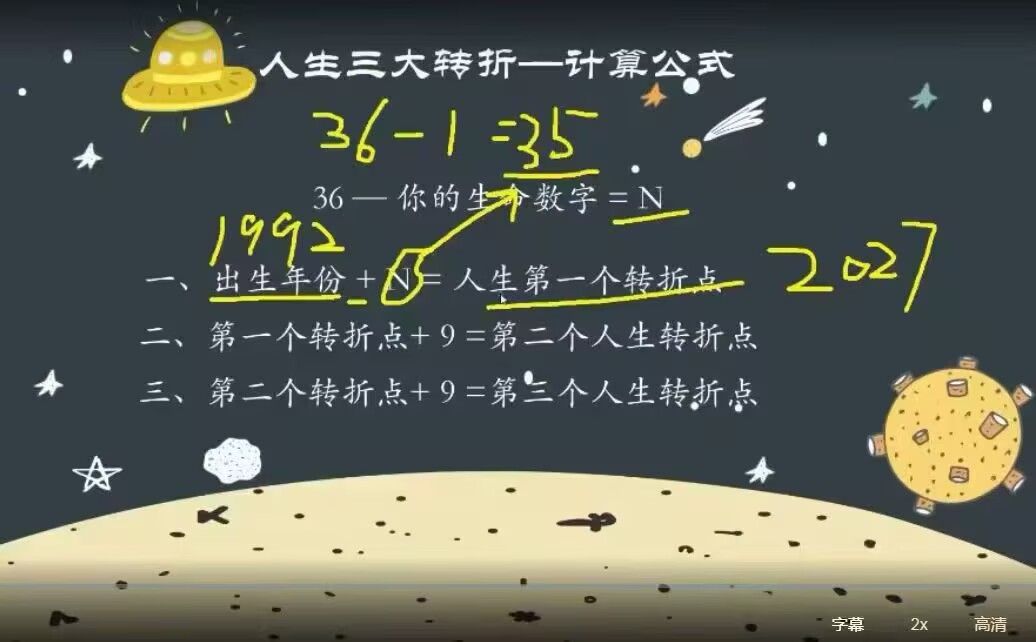 人生三大转折—计算公式
36-1=35
36 — 你的生命数字 = N
1992
一、出生年份 + N = 人生第一个转折点
2027
二、第一个转折点+ 9 =第二个人生转折点
三、第二个转折点+ 9 =第三个人生转折点
字幕 2x 高清